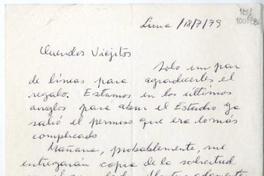 Lima /18/7/79
Queridos Viejitos
Solo un par
de líneas para agradecerles el
regalo. Estamos en los últimos
arreglos para abrir el Estudio ya
salió el permiso que era lo más
complicado
Mañana, probablemente, me
entregarán copia de la solicitud